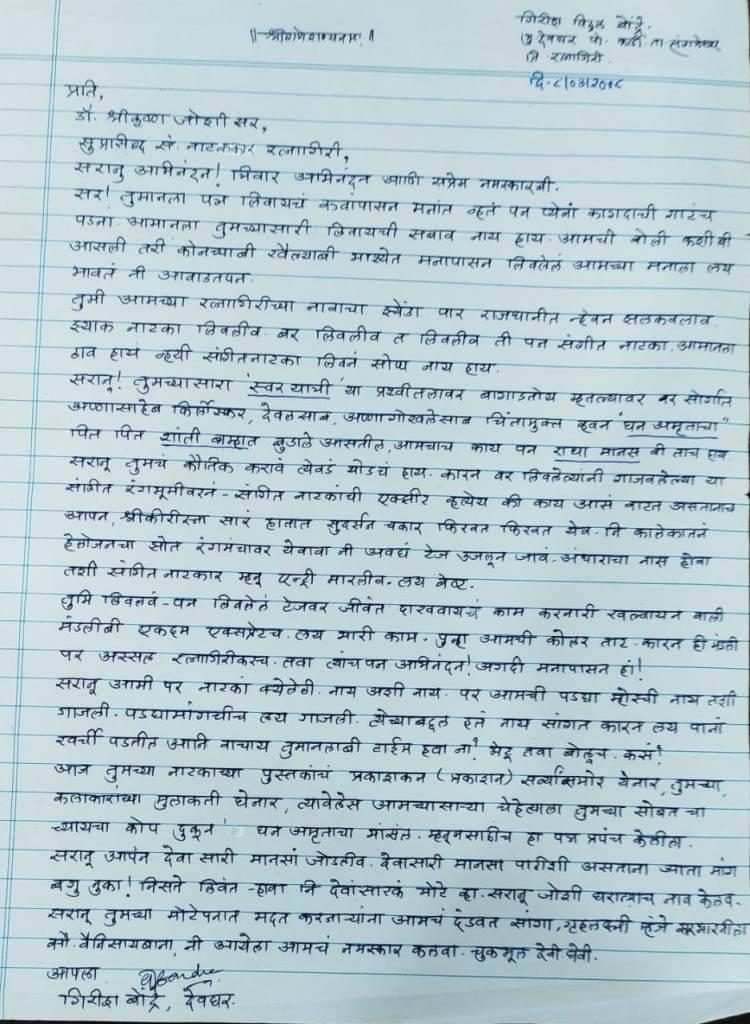 ॥ श्रीगणेशायनमः ॥
गिरीश विठ्ठल बोंद्रे
मु देवघर पो. कर्डी ता संगमेश्वर
जि रत्नागिरी.
दि - ८/०३/२००८
प्रति,
डॉ. श्रीकृष्ण जोशी सर,
सुप्रसिध्द सं. नाटककार रत्नागिरी,
सरानु अभिनंदन! त्रिवार अभिनंदन आणि सप्रेम नमस्कारबी.
सर! तुमानला पत्र लिवायचं कवांपासन मनांत व्हतं पन प्येनां कागदाची गाटंच
पडना. आमानला तुमच्यासारी लिवायची सवाव नाय हाय. आमची बोली कशीबी
आसली तरी कोनच्याबी रवैल्याबी भाश्येत मनापासन लिवलेलं आमच्या मनाला लय
भावतं नी आवाडतपन.
तुमी आमच्या रत्नागिरीच्या नावाचा झ्येंडा पार राजधानीत न्हेवन झलकवलाव.
झ्याक नाटका लिवलीव. बर लिवलीव त लिवलीव ती पन संगीत नाटका. आमानला
ठाव हायं न्हयी संगीतनाटका लिवनं सोप्प नाय हाय.
सरानू! तुमच्यासारा 'स्वरयात्री' या प्रथ्वीतलावर बागाडतोय म्हतल्यावर वर सोर्गात
अण्णासाहेब किर्लोस्कर, देवलसाब, अण्णागोखलेसाब चिंतामुक्त व्हवन 'घन अमृताचा"
पित पित शांती ब्रम्हात बुडाले आसतील, आमचाच काय पन राधा मानस बी ताच हाय.
सरानू तुमचं कौतिक करावं तेवडं थोडचं हाय. कारन वर लिवलेत्यांनी गाजवलेल्या या
संगित रंगभूमीवरनं - संगित नाटकांची एक्झीट व्हत्येय की काय आसं वाटत असतानाच
आपन, श्रीकीरीस्ना सारं हातात सुदर्सन चकार फिरवत फिरवत येव. नि काळोकातनं
हेलोजनचा सोत रंगमंचावर येवावा नी अवघं टेज उजळून जावं. अंधाराचा नास होवा
तशी संगित नाटककार म्हनू एन्ट्री मारलीव. लय बेष्ट.
तुमि लिवलवं - पन लिवलेलं टेजवर जीवंत दाखवायचं काम करनारी खल्वायन वाली
मंडलीबी एकदम एक्सप्रेटच. लय भारी काम. पुन्हा आमची कोलर ताट. कारन ही मंडली
पर अस्सल रत्नागिरीकरच. तवा त्यांचपन अभिनंदन! अगदी मनापासन हां!
सरानू आमी पर नाटकां क्येलेली. नाय अशी नाय. पर आमची पडद्या म्होरची नाय तशी
गाजली. पडद्यामांगचीच लय गाजली. त्येच्याबद्दल हतं नाय सांगत कारन लय पानां
खर्ची पडतीत आनि वाचाय तुमानलाबी टाईम हवा ना? भेटू तवा बोलूच. कसं!
आज तुमच्या नाटकाच्या पुस्तकांचं प्रकाशकन (प्रकाशन) सर्व्यांसमोर येनार, तुमच्या,
कलाकारांच्या मुलाकती घेनार, त्यावेलेस आमच्यासाऱ्या चेहेत्याला तुमच्या सोबत चा
च्यायचा कोप दुकून घन अमृताचा मांसल. म्हनूनसाठीच हा पत्र प्रपंच केलीला.
सरानू आपन देवा सारी मानसां जोडलीव. देवासारी मानसा पाठीशी असताना ज्याता मांग
बगु नुका! निसते लिवत -हावा नि देवांसारकं मोटे व्हा. सरानू जोशी घरात्याच नाव केलव.
सरानू तुमच्या मोटेपनात मदत करनाऱ्यांना आमचं दंडवत सांगा, गृहलक्ष्मी म्हंजे कारभारनीला
सौ. वैनिसायबाना, नी आयेला आमचं नमस्कार कलवा. चुकभूल देवी घेवी.
आपला
गिरीश बोंद्रे, देवघर.